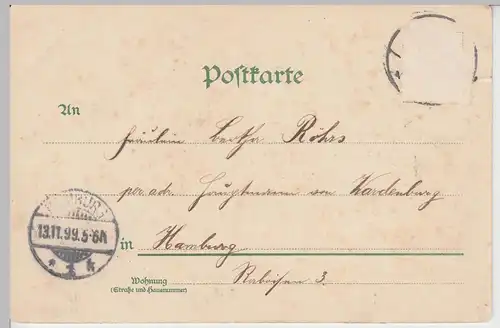 Postkarte
An Fräulein Bertha Röhrs
per. adr. Hauptmann von Wardenburg
HAMBURG 1
13.11.99.5-6N
* 1 k
in Hamburg
Wohnung Raboisen 3.
(Straße und Hausnummer)